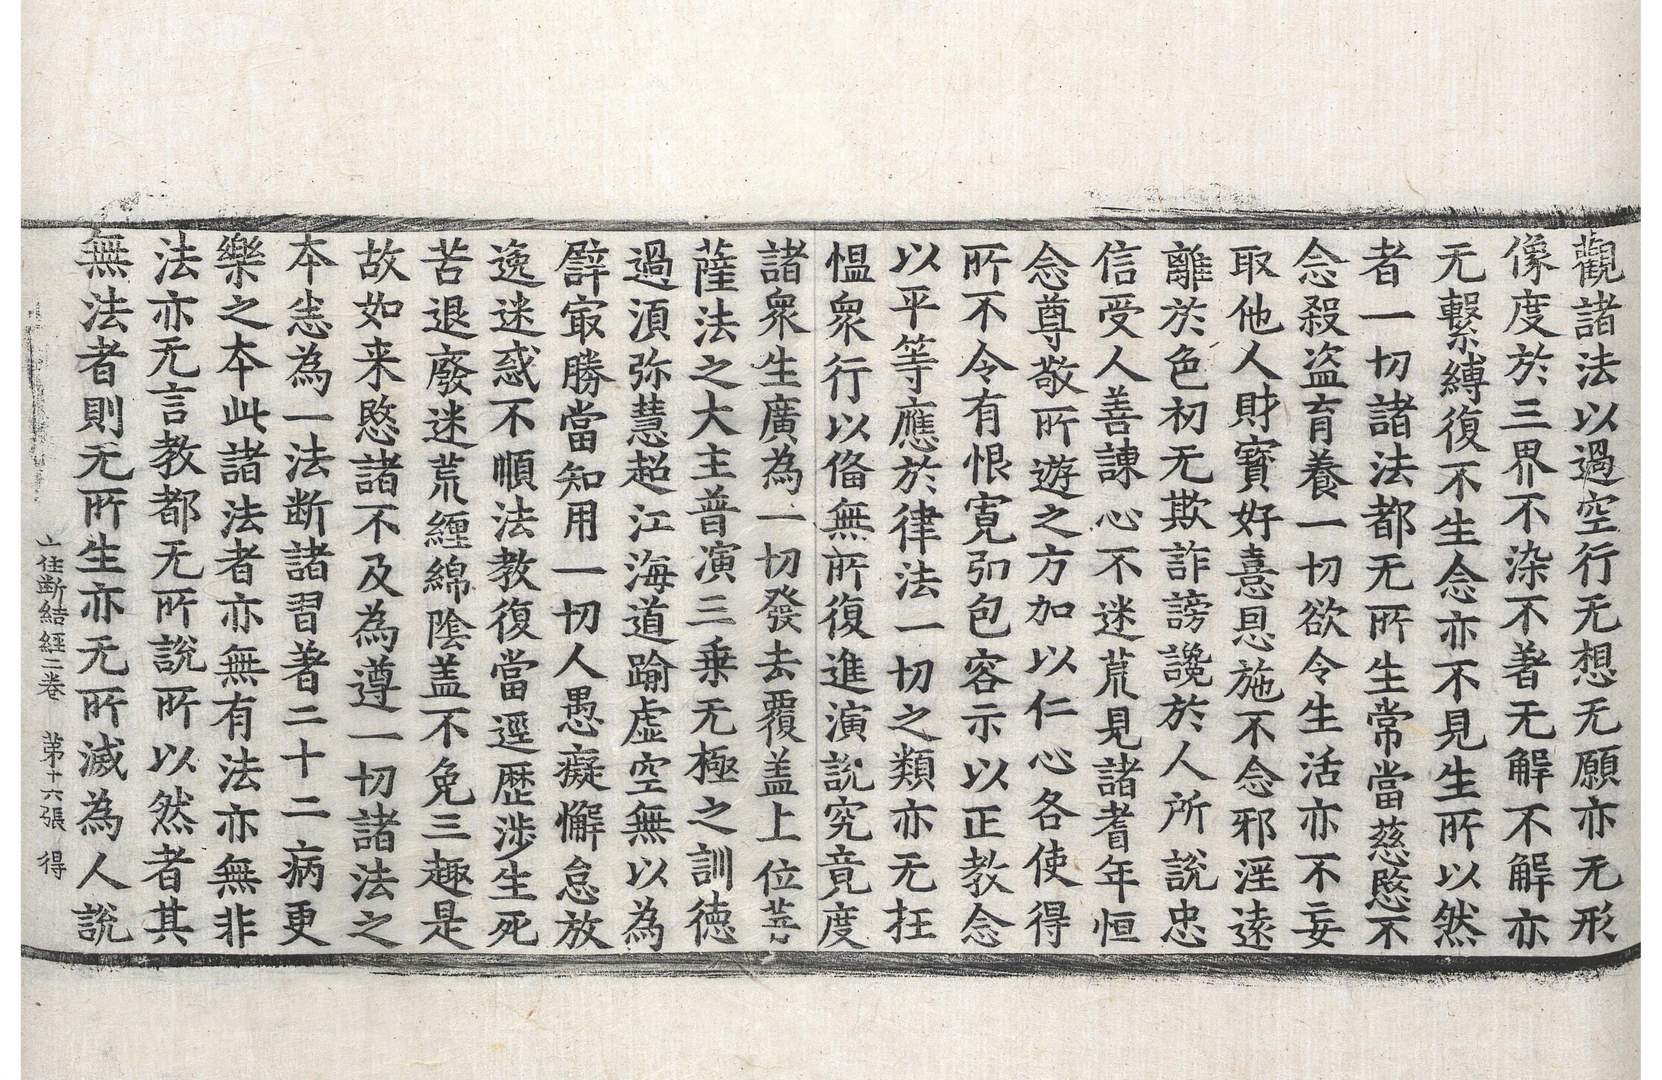 觀諸法以過空行无想无願亦无形
像度於三界不染不著无解不解亦
无繫縛復不生念亦不見生所以然
者一切諸法都无所生常當慈愍不
念殺盗育養一切欲令生活亦不妄
取他人財寶好憙恩施不念邪淫遠
離於色初无欺詐謗讒於人所說忠
信受人善諫心不迷荒見諸耆年恒
念尊敬所遊之方加以仁心各使得
所不令有恨寛弘包容示以正教念
以平等應於律法一切之類亦无抂
愠衆行以俻無所復進演說究竟度
諸衆生廣為一切發去覆盖上位菩
薩法之大主普演三乗无極之訓德
過湏弥慧超江海道踰虚空無以為
辟冣勝當知用一切人愚癡懈怠放
逸迷惑不順法教復當逕歴涉生死
苦退廢迷荒纒綿陰盖不免三趣是
故如来愍諸不及為遵一切諸法之
本恙為一法断諸習著二十二病更
樂之本此諸法者亦無有法亦無非
法亦无言教都无所說所以然者其
無法者則无所生亦无所滅為人說
住断結經二巻 苐十六張 得